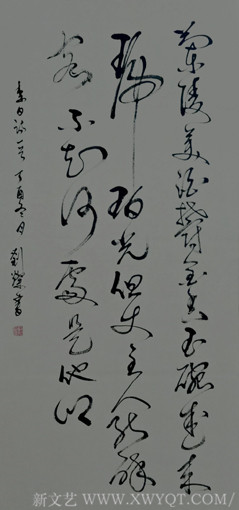 蘭陵美酒鬱金香玉碗盛来
琥珀光但使主人能醉
客不知何處是他鄉
李白詩一首丁酉冬月劉榮書
新文艺 WWW.XWYQT.COM/